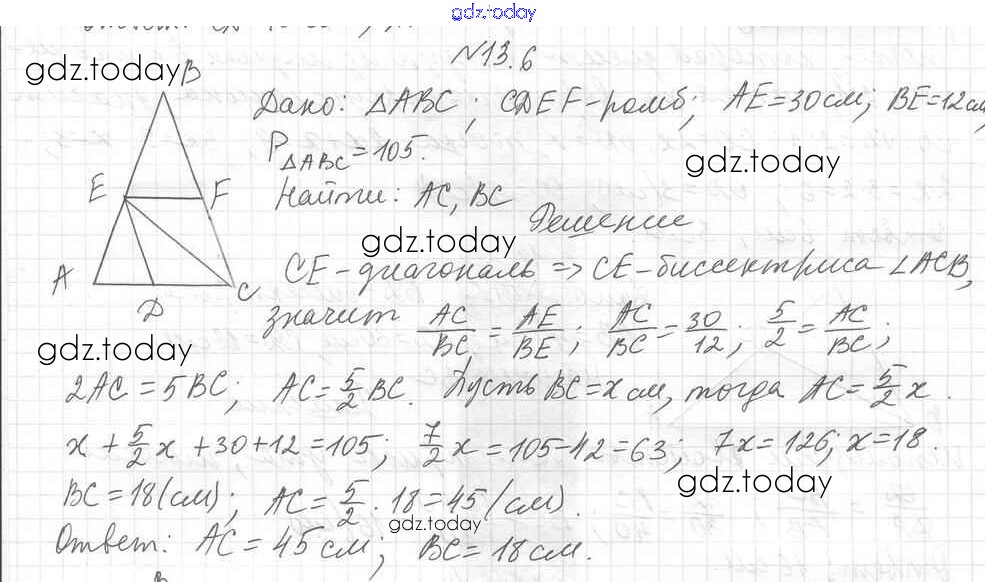 gdz.today
№13.6
gdz.today
B
Дано: △ABC; CDEF-ромб; AE=30см; BE=12см,
P△ABC=105.
gdz.today
E F
Найти: AC, BC
Решение
gdz.today
A D C
CE-диагональ => CE-биссектриса ∠ACB,
значит AC/BC = AE/BE; AC/BC = 30/12; 5/2 = AC/BC;
gdz.today
2AC=5BC; AC=5/2 BC. Пусть BC=x см, тогда AC=5/2 x.
x+5/2 x+30+12=105; 7/2 x=105-42=63; 7x=126; x=18.
gdz.today
BC=18(см); AC=5/2·18=45(см).
gdz.today
Ответ: AC=45см; BC=18см.